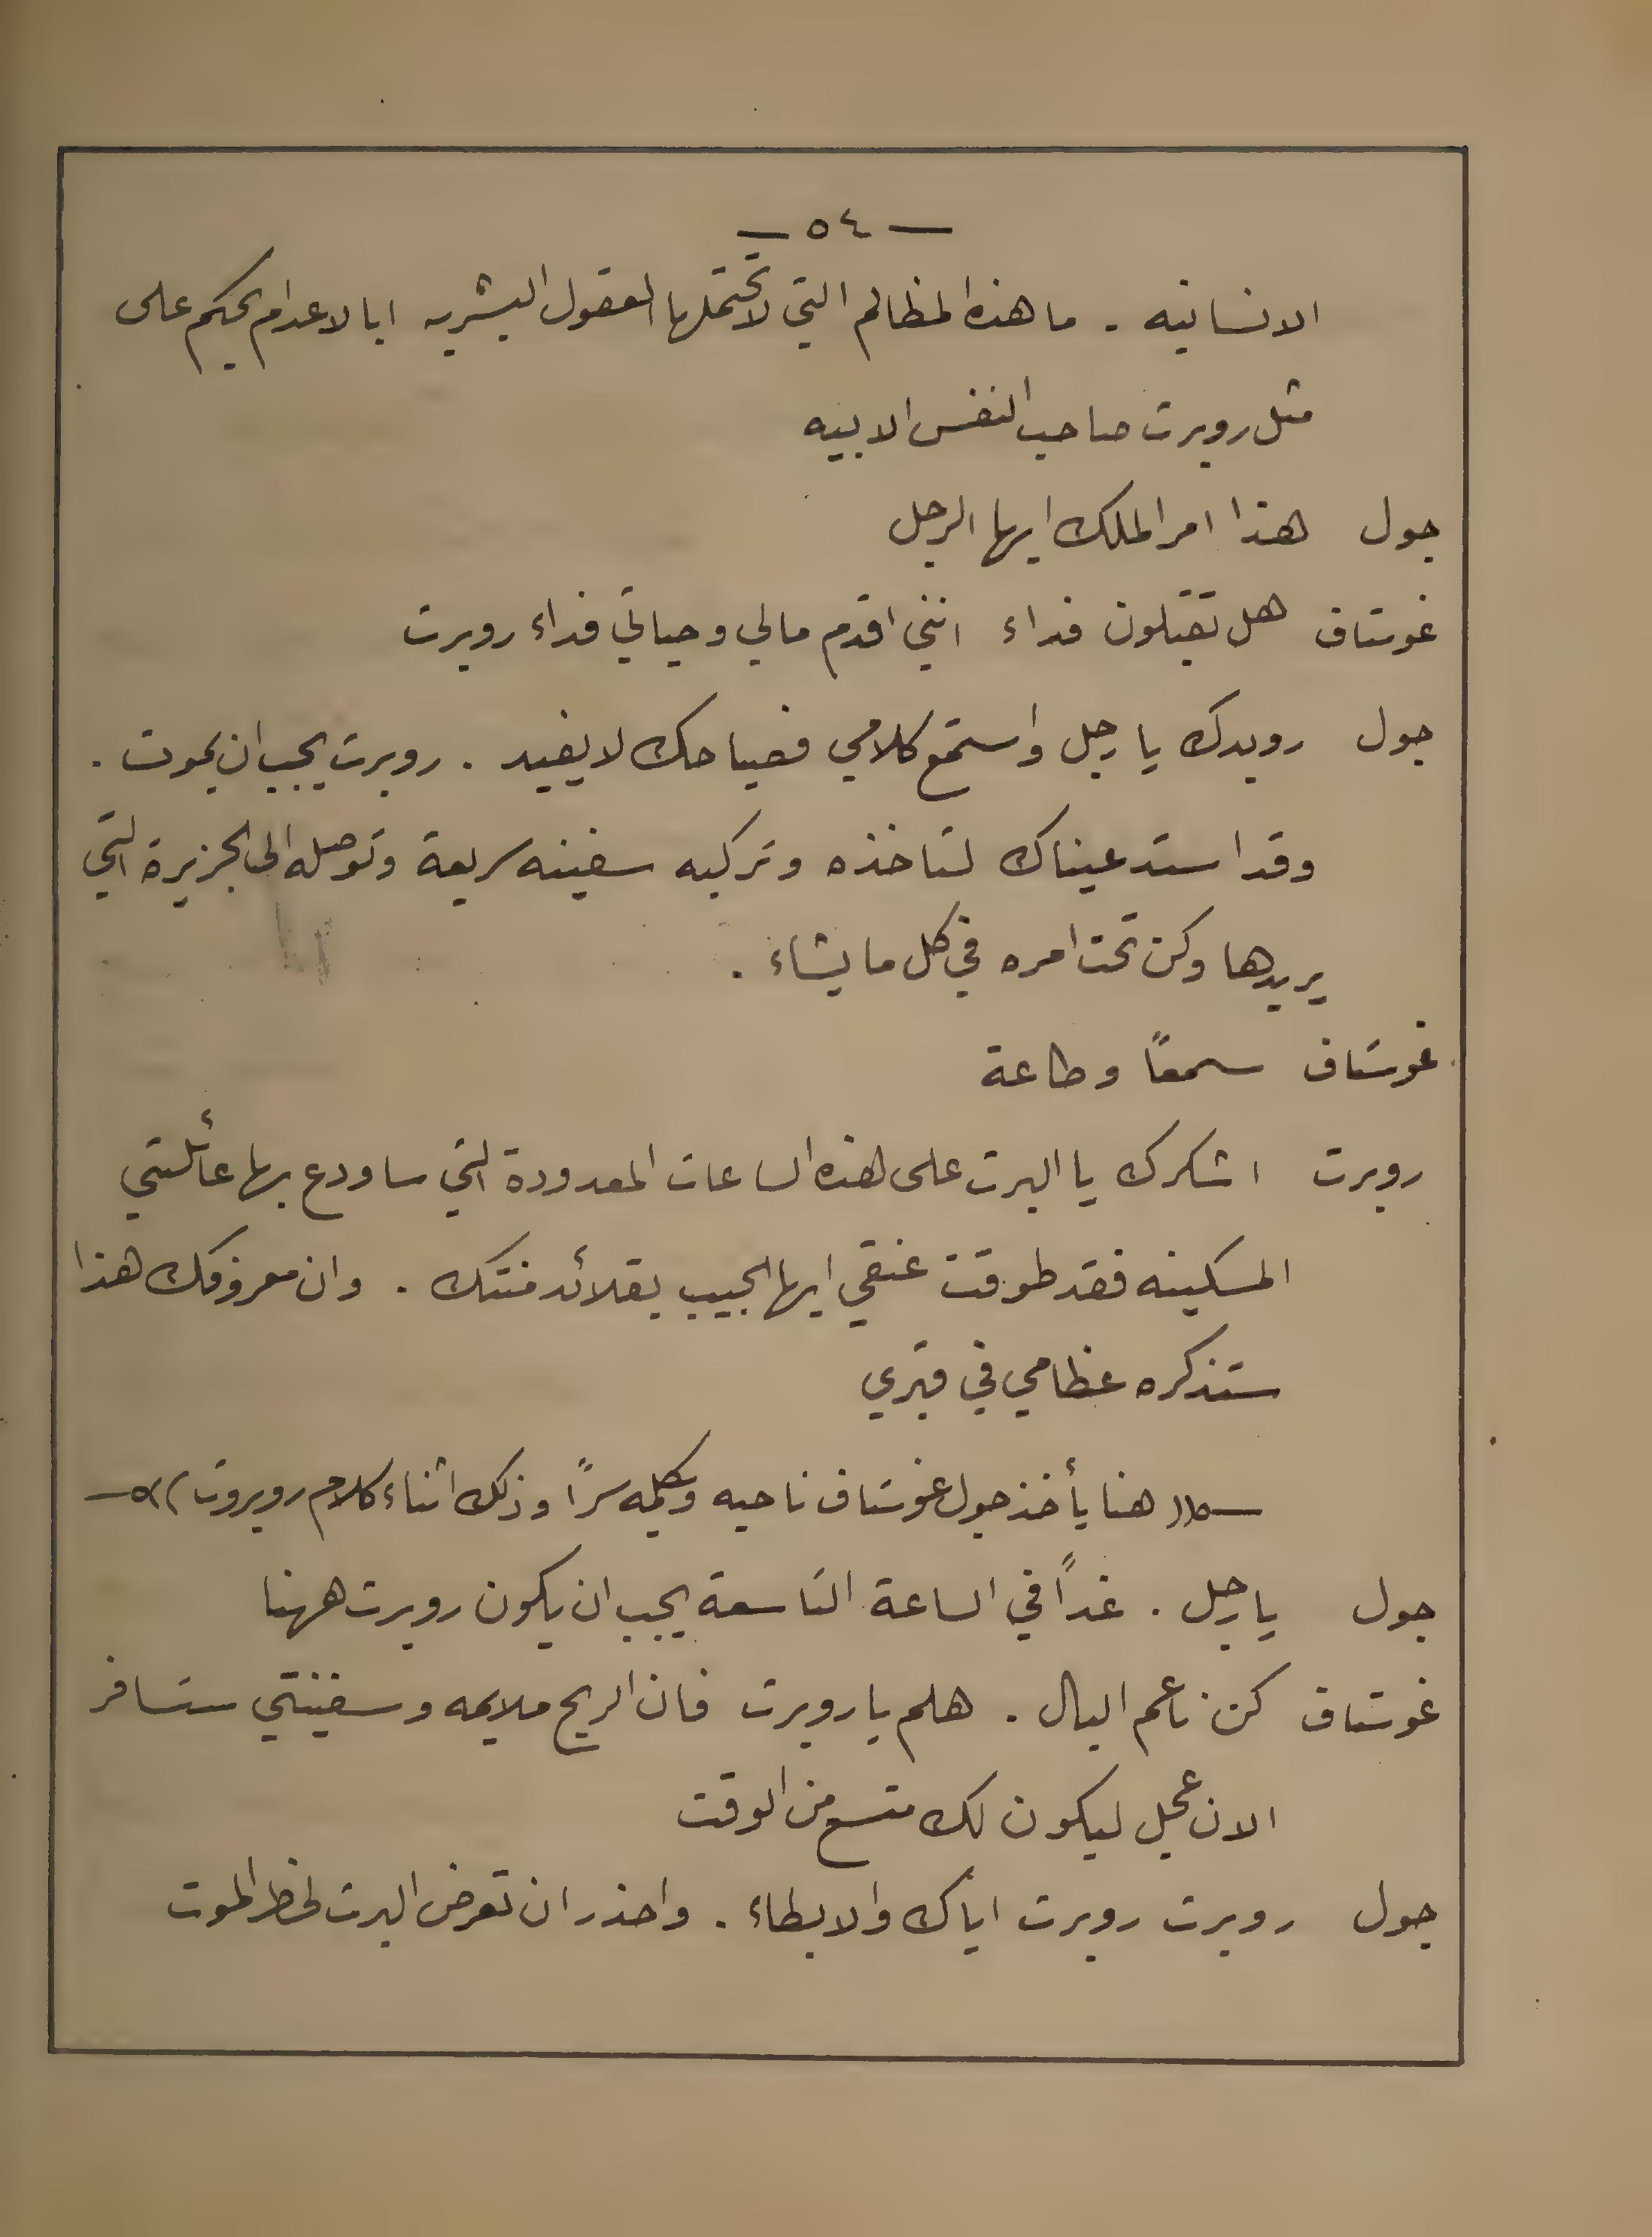 — ٥٤ —
الانسانيه . ما هذه المظالم التي لا تحتملها العقول البشريه ابالاعدام يحكم على
مثل روبرت صاحب النفس الابيه
جول هذا امر الملك ايها الرجل
غوستاف هل تقبلون فداء انني اقدم مالي وحياتي فداء روبرت
جول رويدك يا رجل واستمع كلامي فصياحك لا يفيد . روبرت يجب ان يموت .
وقد استدعيناك لتاخذه وتركبه سفينه سريعة وتوصله الى الجزيرة التي
يريدها وكن تحت امره في كل ما يشاء .
غوستاف سمعاً وطاعة
روبرت اشكرك يا البرت على هذه الساعات المعدودة التي ساودع بها عائلتي
المسكينه فقد طوقت عنقي ايها الحبيب بقلائد منتك . وان معروفك هذا
ستذكره عظامي في قبري
—٥(( هنا يأخذ جول غوستاف ناحيه ويكلمه سراً وذلك اثناء كلام روبروت ))٥—
جول يا رجل . غداً في الساعة التاسعة يجب ان يكون روبرت ههنا
غوستاف كن ناعم البال . هلم يا روبرت فان الريح ملايمه وسفينتي ستسافر
الان عجل ليكون لك متسع من الوقت
جول روبرت روبرت اياك والابطاء . واحذر ان تعرض البرت لخطر الموت